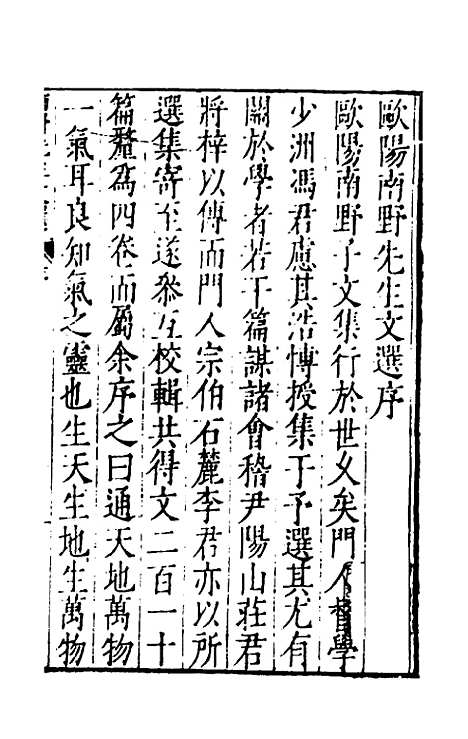 歐陽南野先生文選序
歐陽南野子文集行於世乆矣門人督學
少洲馮君慮其浩愽授集于予選其尤有
關於學者若干篇謀諸會稽尹陽山莊君
將梓以傳而門人宗伯石麓李君亦以所
選集寄至遂叅互校輯共得文二百一十
篇釐爲四卷而屬余序之曰通天地萬物
一氣耳良知氣之靈也生天生地生萬物